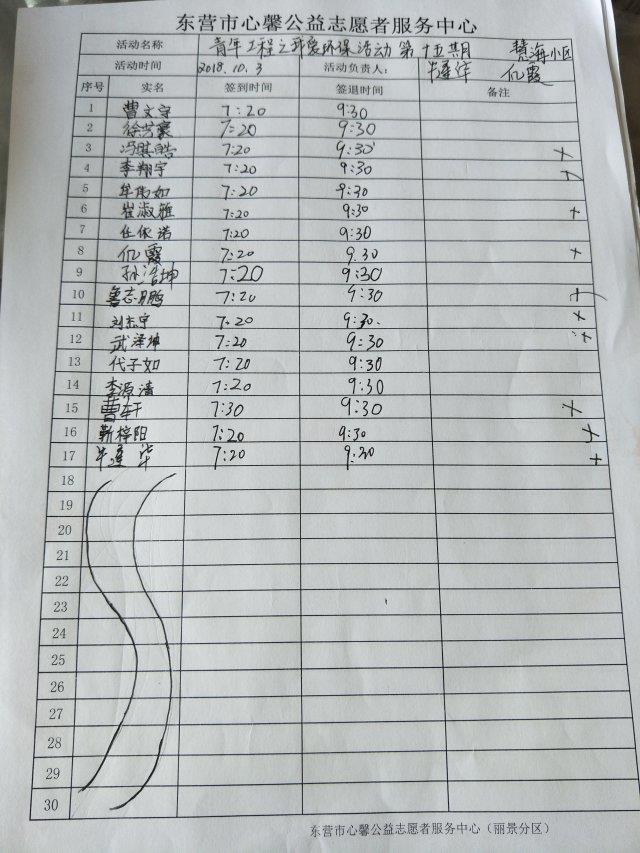 东营市心馨公益志愿者服务中心
活动名称 青年工程之 环保活动 第十五期 碧海小区
活动时间 2018.10.3 活动负责人: 牛莲华 亿霞
序号 实名 签到时间 签退时间 备注
1 曹文宇 7:20 9:30
2 7:20 9:30
3 冯琪皓 7:20 9:30 +
4 李翔宇 7:20 9:30
5 7:20 9:30
6 崔淑雅 7:20 9:30 +
7 任依诺 7:20 9:30
8 亿霞 7:20 9.30 +
9 孙浩坤 7:20 9:30
10 鲁志鹏 7:20 9:30 +
11 刘志宇 7.20 9:30. +
12 武泽坤 7:20 9:30 +
13 代子如 7:20 9:30
14 李源清 7:20 9:30
15 曹轩 7:30 9:30 +
16 靳梓阳 7:20 9:30 +
17 牛莲华 7:20 9:30 +
18
19
20
21
22
23
24
25
26
27
28
29
30
东营市心馨公益志愿者服务中心（丽景分区）